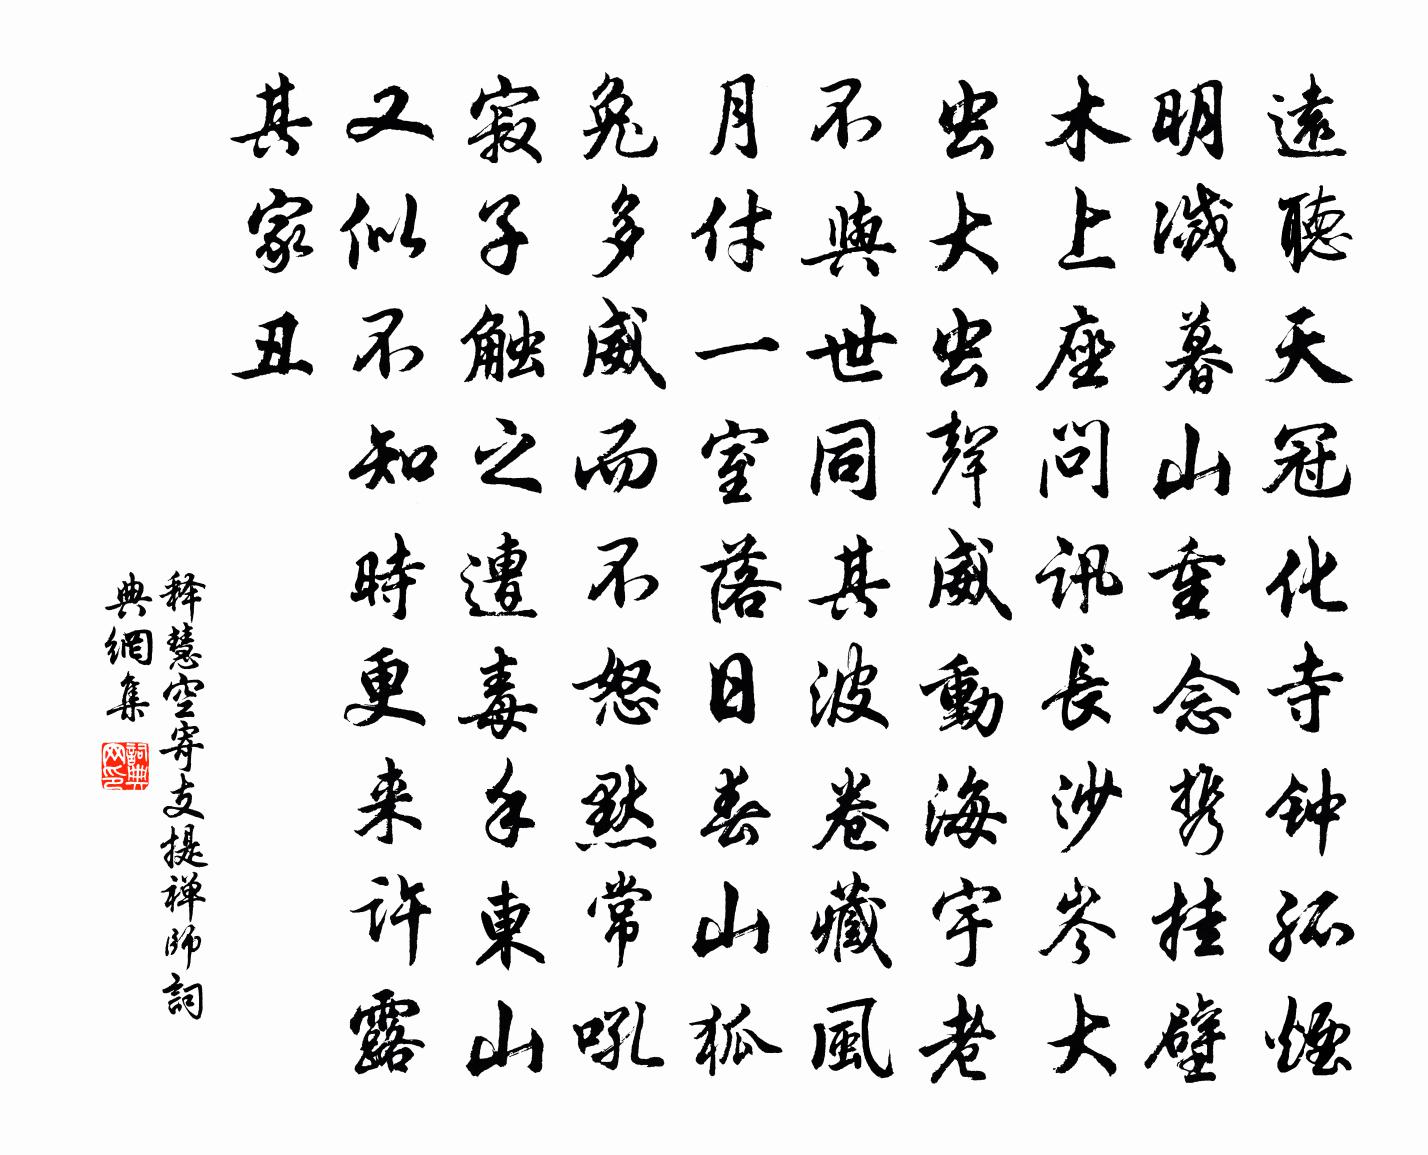 遠聽天冠化寺钟孤煙
明滅暮山重念携挂壁
木上座問訊長沙岑大
虫大虫聲威動海宇老
不與世同其波卷藏風
月付一室落日春山狐
兔多威而不怒默常吼
寂子触之遭毒手東山
又似不知時更来許露
其家丑
释慧空寄支提禅師詞
典網集
詞典网印